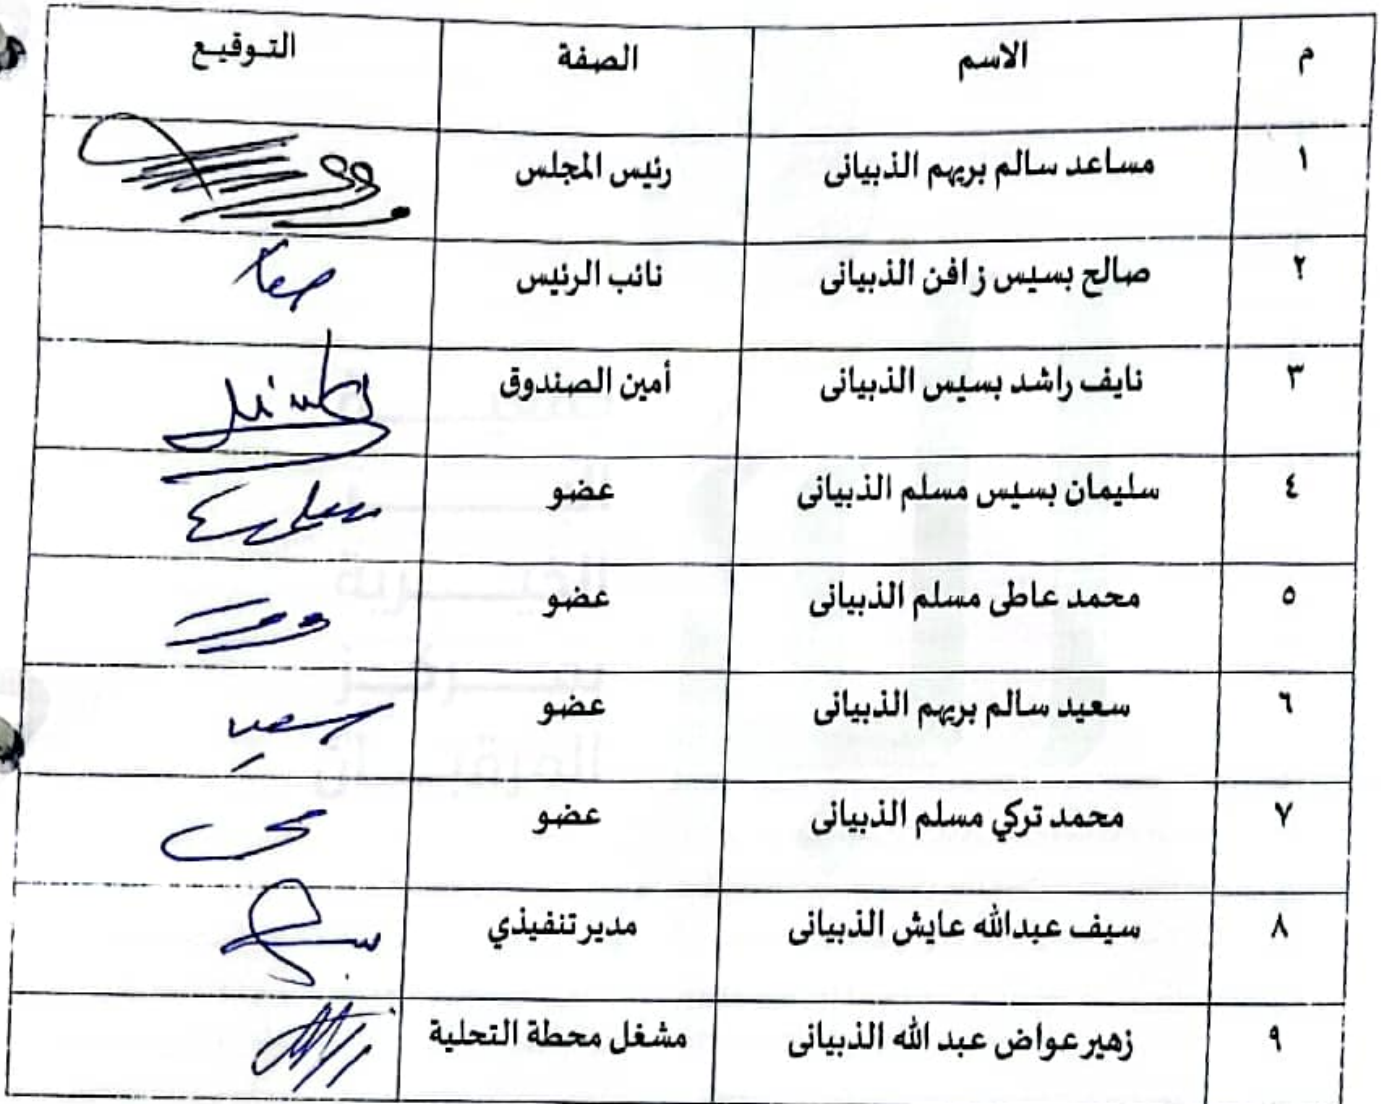 م الاسم الصفة التوقيع
١ مساعد سالم بريهم الذبيانى رئيس المجلس
٢ صالح بسيس زافن الذبيانى نائب الرئيس
٣ نايف راشد بسيس الذبيانى أمين الصندوق
٤ سليمان بسيس مسلم الذبيانى عضو
٥ محمد عاطى مسلم الذبيانى عضو
٦ سعيد سالم بريهم الذبيانى عضو
٧ محمد تركي مسلم الذبيانى عضو
٨ سيف عبدالله عايش الذبيانى مدير تنفيذي
٩ زهير عواض عبد الله الذبيانى مشغل محطة التحلية